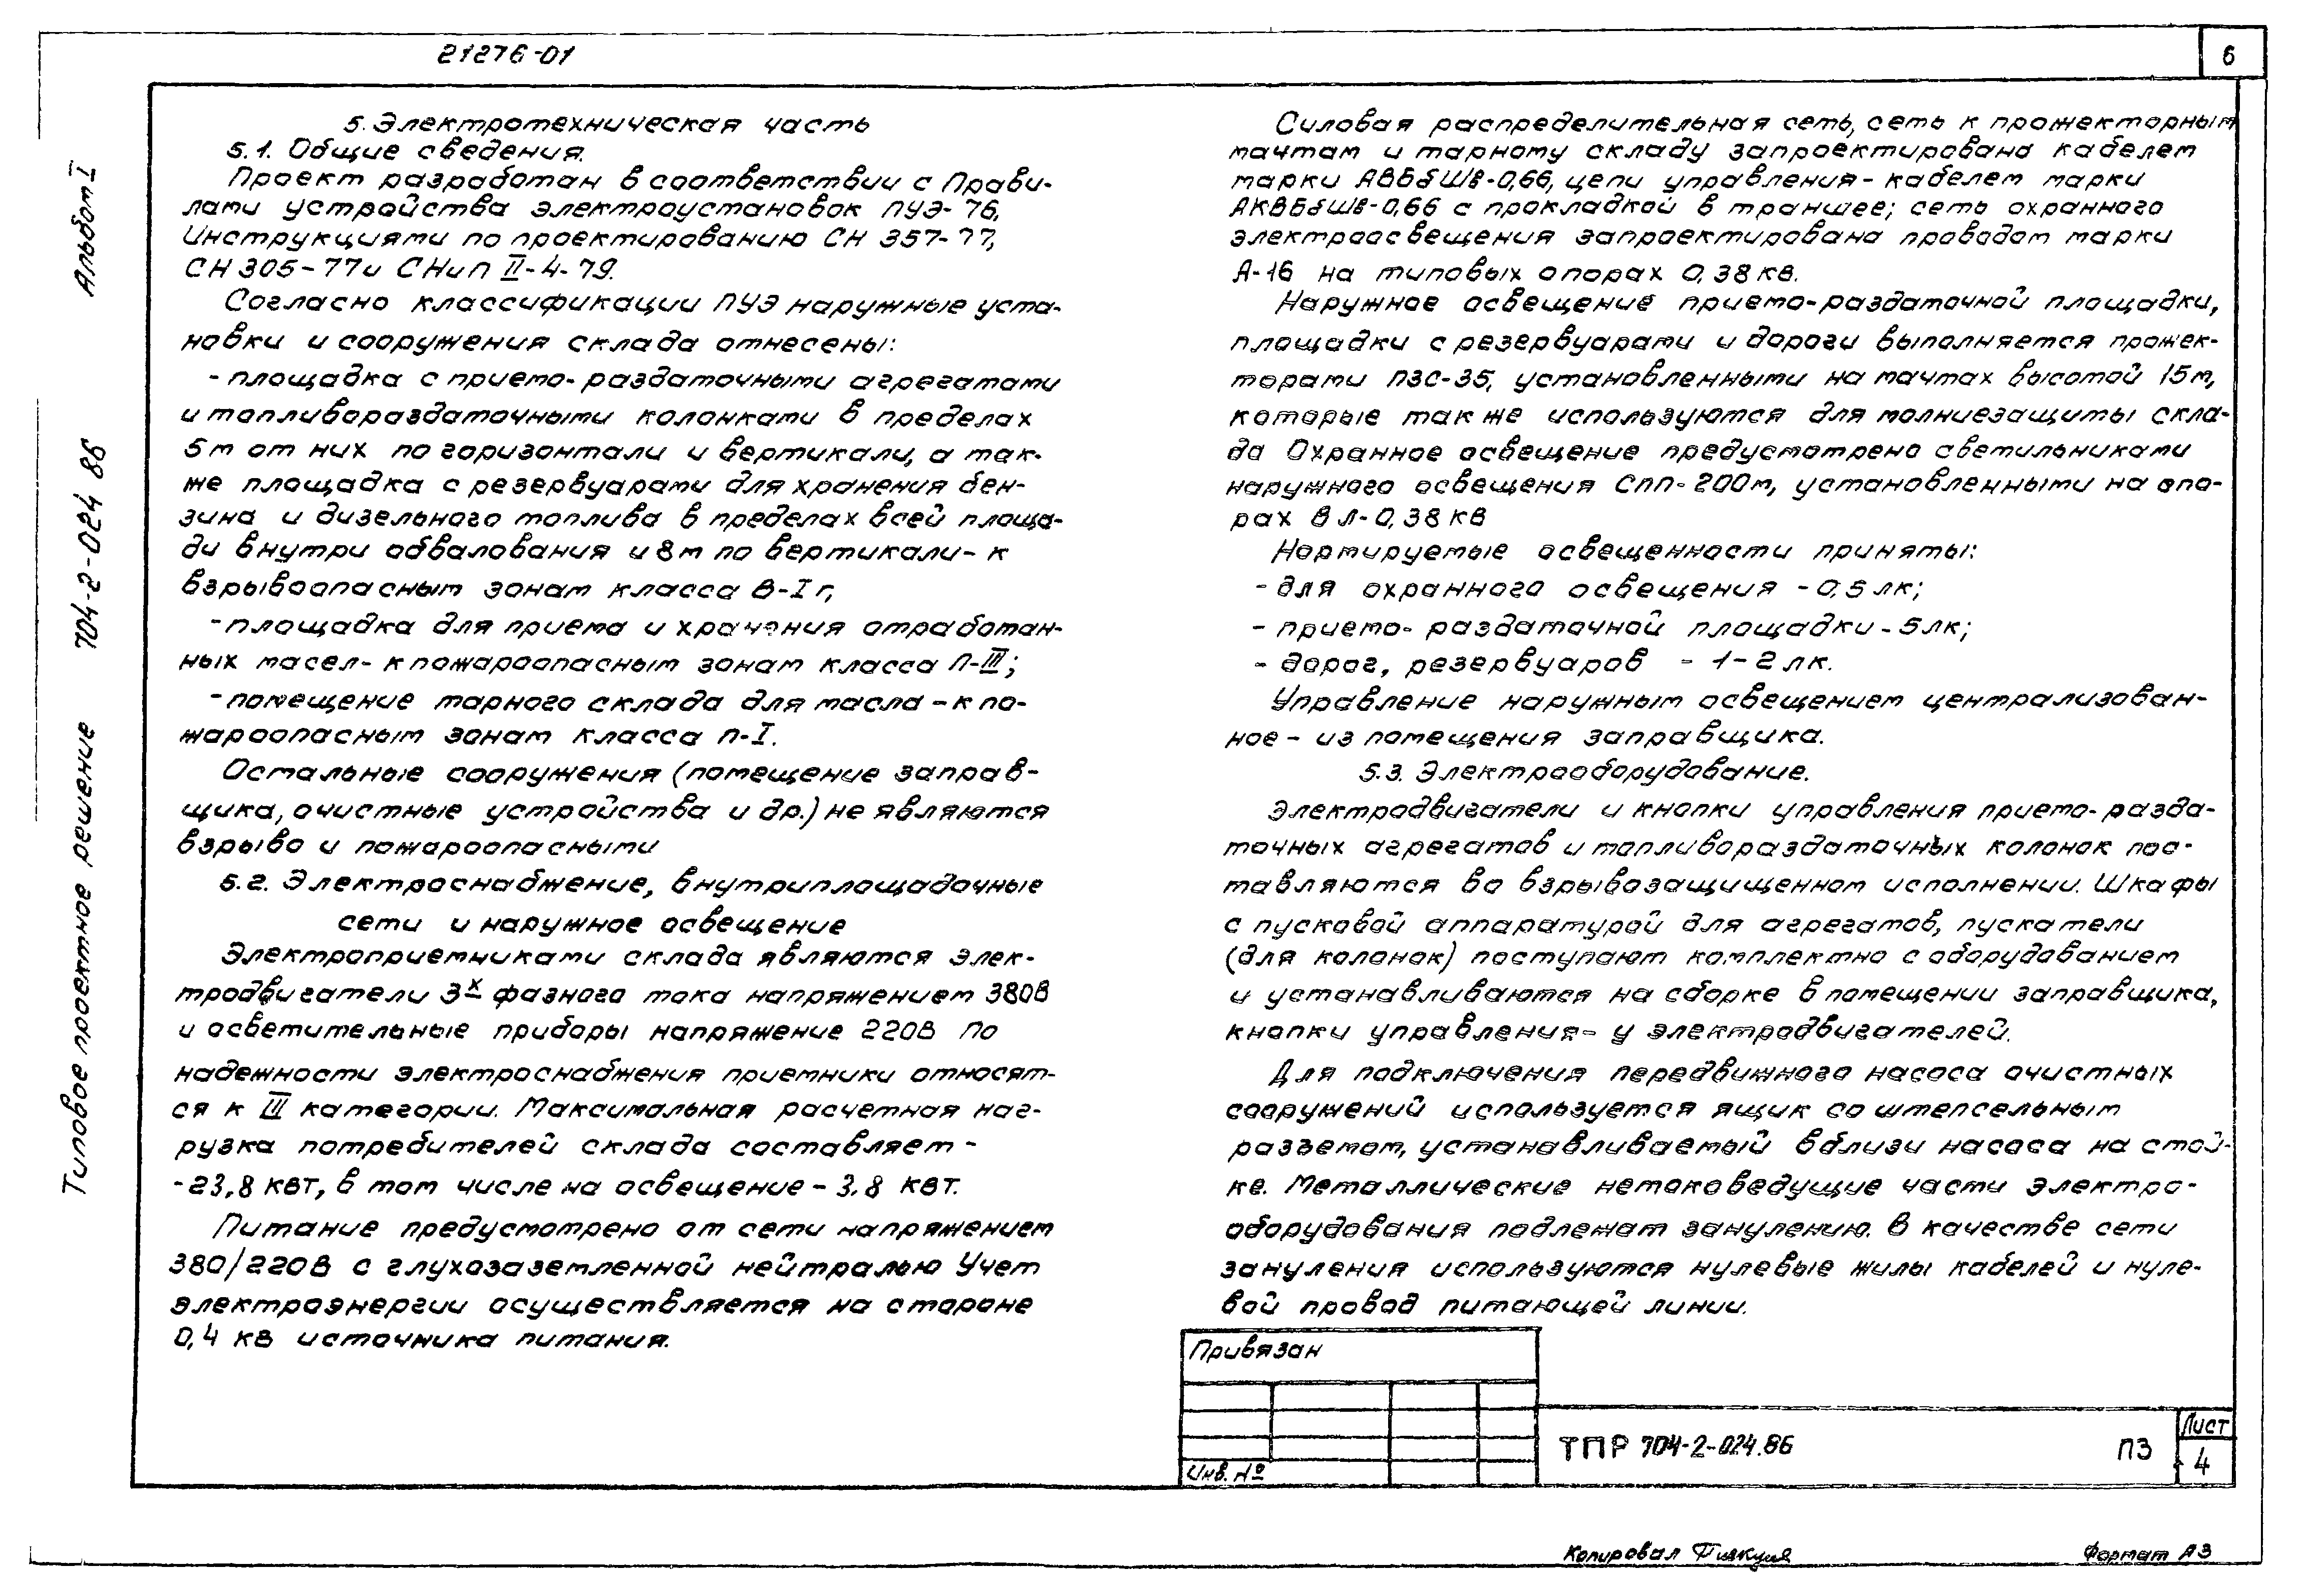 21276-01
6
Альбом I
704-2-024 86
Типовое проектное решение
5. Электротехническая часть
5.1. Общие сведения.
Проект разработан в соответствии с Прави-
лами устройства электроустановок ПУЭ-76,
Инструкциями по проектированию СН 357-77,
СН 305-77 и СНиП II-4-79.
Согласно классификации ПУЭ наружные уста-
новки и сооружения склада отнесены:
- площадка с приемо-раздаточными агрегатами
и топливораздаточными колонками в пределах
5м от них по горизонтали и вертикали, а так-
же площадка с резервуарами для хранения бен-
зина и дизельного топлива в пределах всей площа-
ди внутри обвалования и 8м по вертикали - к
взрывоопасным зонам класса В-Iг;
- площадка для приема и хранения отработан-
ных масел - к пожароопасным зонам класса П-III;
- помещение тарного склада для масла - к по-
жароопасным зонам класса П-I.
Остальные сооружения (помещение заправ-
щика, очистные устройства и др.) не являются
взрыво и пожароопасными
5.2. Электроснабжение, внутриплощадочные
сети и наружное освещение
Электроприемниками склада являются элек-
тродвигатели 3х фазного тока напряжением 380В
и осветительные приборы напряжение 220В По
надежности электроснабжения приемники относят-
ся к III категории. Максимальная расчетная наг-
рузка потребителей склада составляет -
- 23,8 кВт, в том числе на освещение - 3,8 кВт.
Питание предусмотрено от сети напряжением
380/220В с глухозаземленной нейтралью Учет
электроэнергии осуществляется на стороне
0,4 кВ источника питания.
Силовая распределительная сеть, сеть к прожекторным
мачтам и тарному складу запроектирована кабелем
марки АВБбШв-0,66, цепи управления - кабелем марки
АКВБбШв-0,66 с прокладкой в траншее; сеть охранного
электроосвещения запроектирована проводом марки
А-16 на типовых опорах 0,38 кВ.
Наружное освещение приемо-раздаточной площадки,
площадки с резервуарами и дороги выполняется прожек-
торами ПЗС-35, установленными на мачтах высотой 15м,
которые так же используются для молниезащиты скла-
да Охранное освещение предусмотрено светильниками
наружного освещения СПП-200м, установленными на опо-
рах ВЛ-0,38 кВ
Нормируемые освещенности приняты:
- для охранного освещения - 0,5 лк;
- приемо-раздаточной площадки - 5лк;
- дорог, резервуаров - 1-2 лк.
Управление наружным освещением централизован-
ное - из помещения заправщика.
5.3. Электрооборудование.
Электродвигатели и кнопки управления приемо-разда-
точных агрегатов и топливораздаточных колонок пос-
тавляются во взрывозащищенном исполнении. Шкафы
с пусковой аппаратурой для агрегатов, пускатели
(для колонок) поступают комплектно с оборудованием
и устанавливаются на сборке в помещении заправщика,
кнопки управления - у электродвигателей.
Для подключения передвижного насоса очистных
сооружений используется ящик со штепсельным
разъемом, устанавливаемый вблизи насоса на стой-
ке. Металлические нетоковедущие части электро-
оборудования подлежат занулению. В качестве сети
зануления используются нулевые жилы кабелей и нуле-
вой провод питающей линии.
Привязан
Инв. №
ТПР 704-2-024.86
ПЗ
Лист
4
Копировал
Формат А3